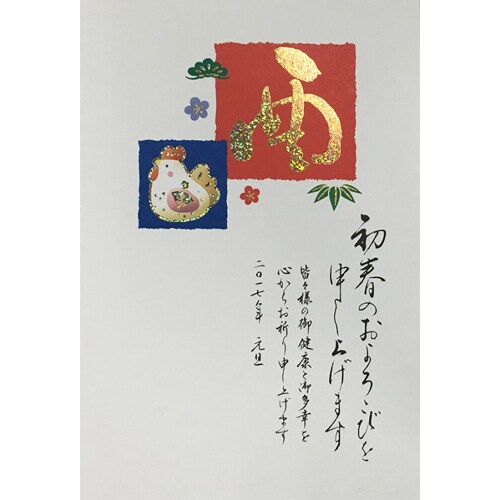 初春のおよろこびを
申し上げます
皆々様の御健康と御多幸を
心からお祈り申し上げます
二〇一七年 元旦